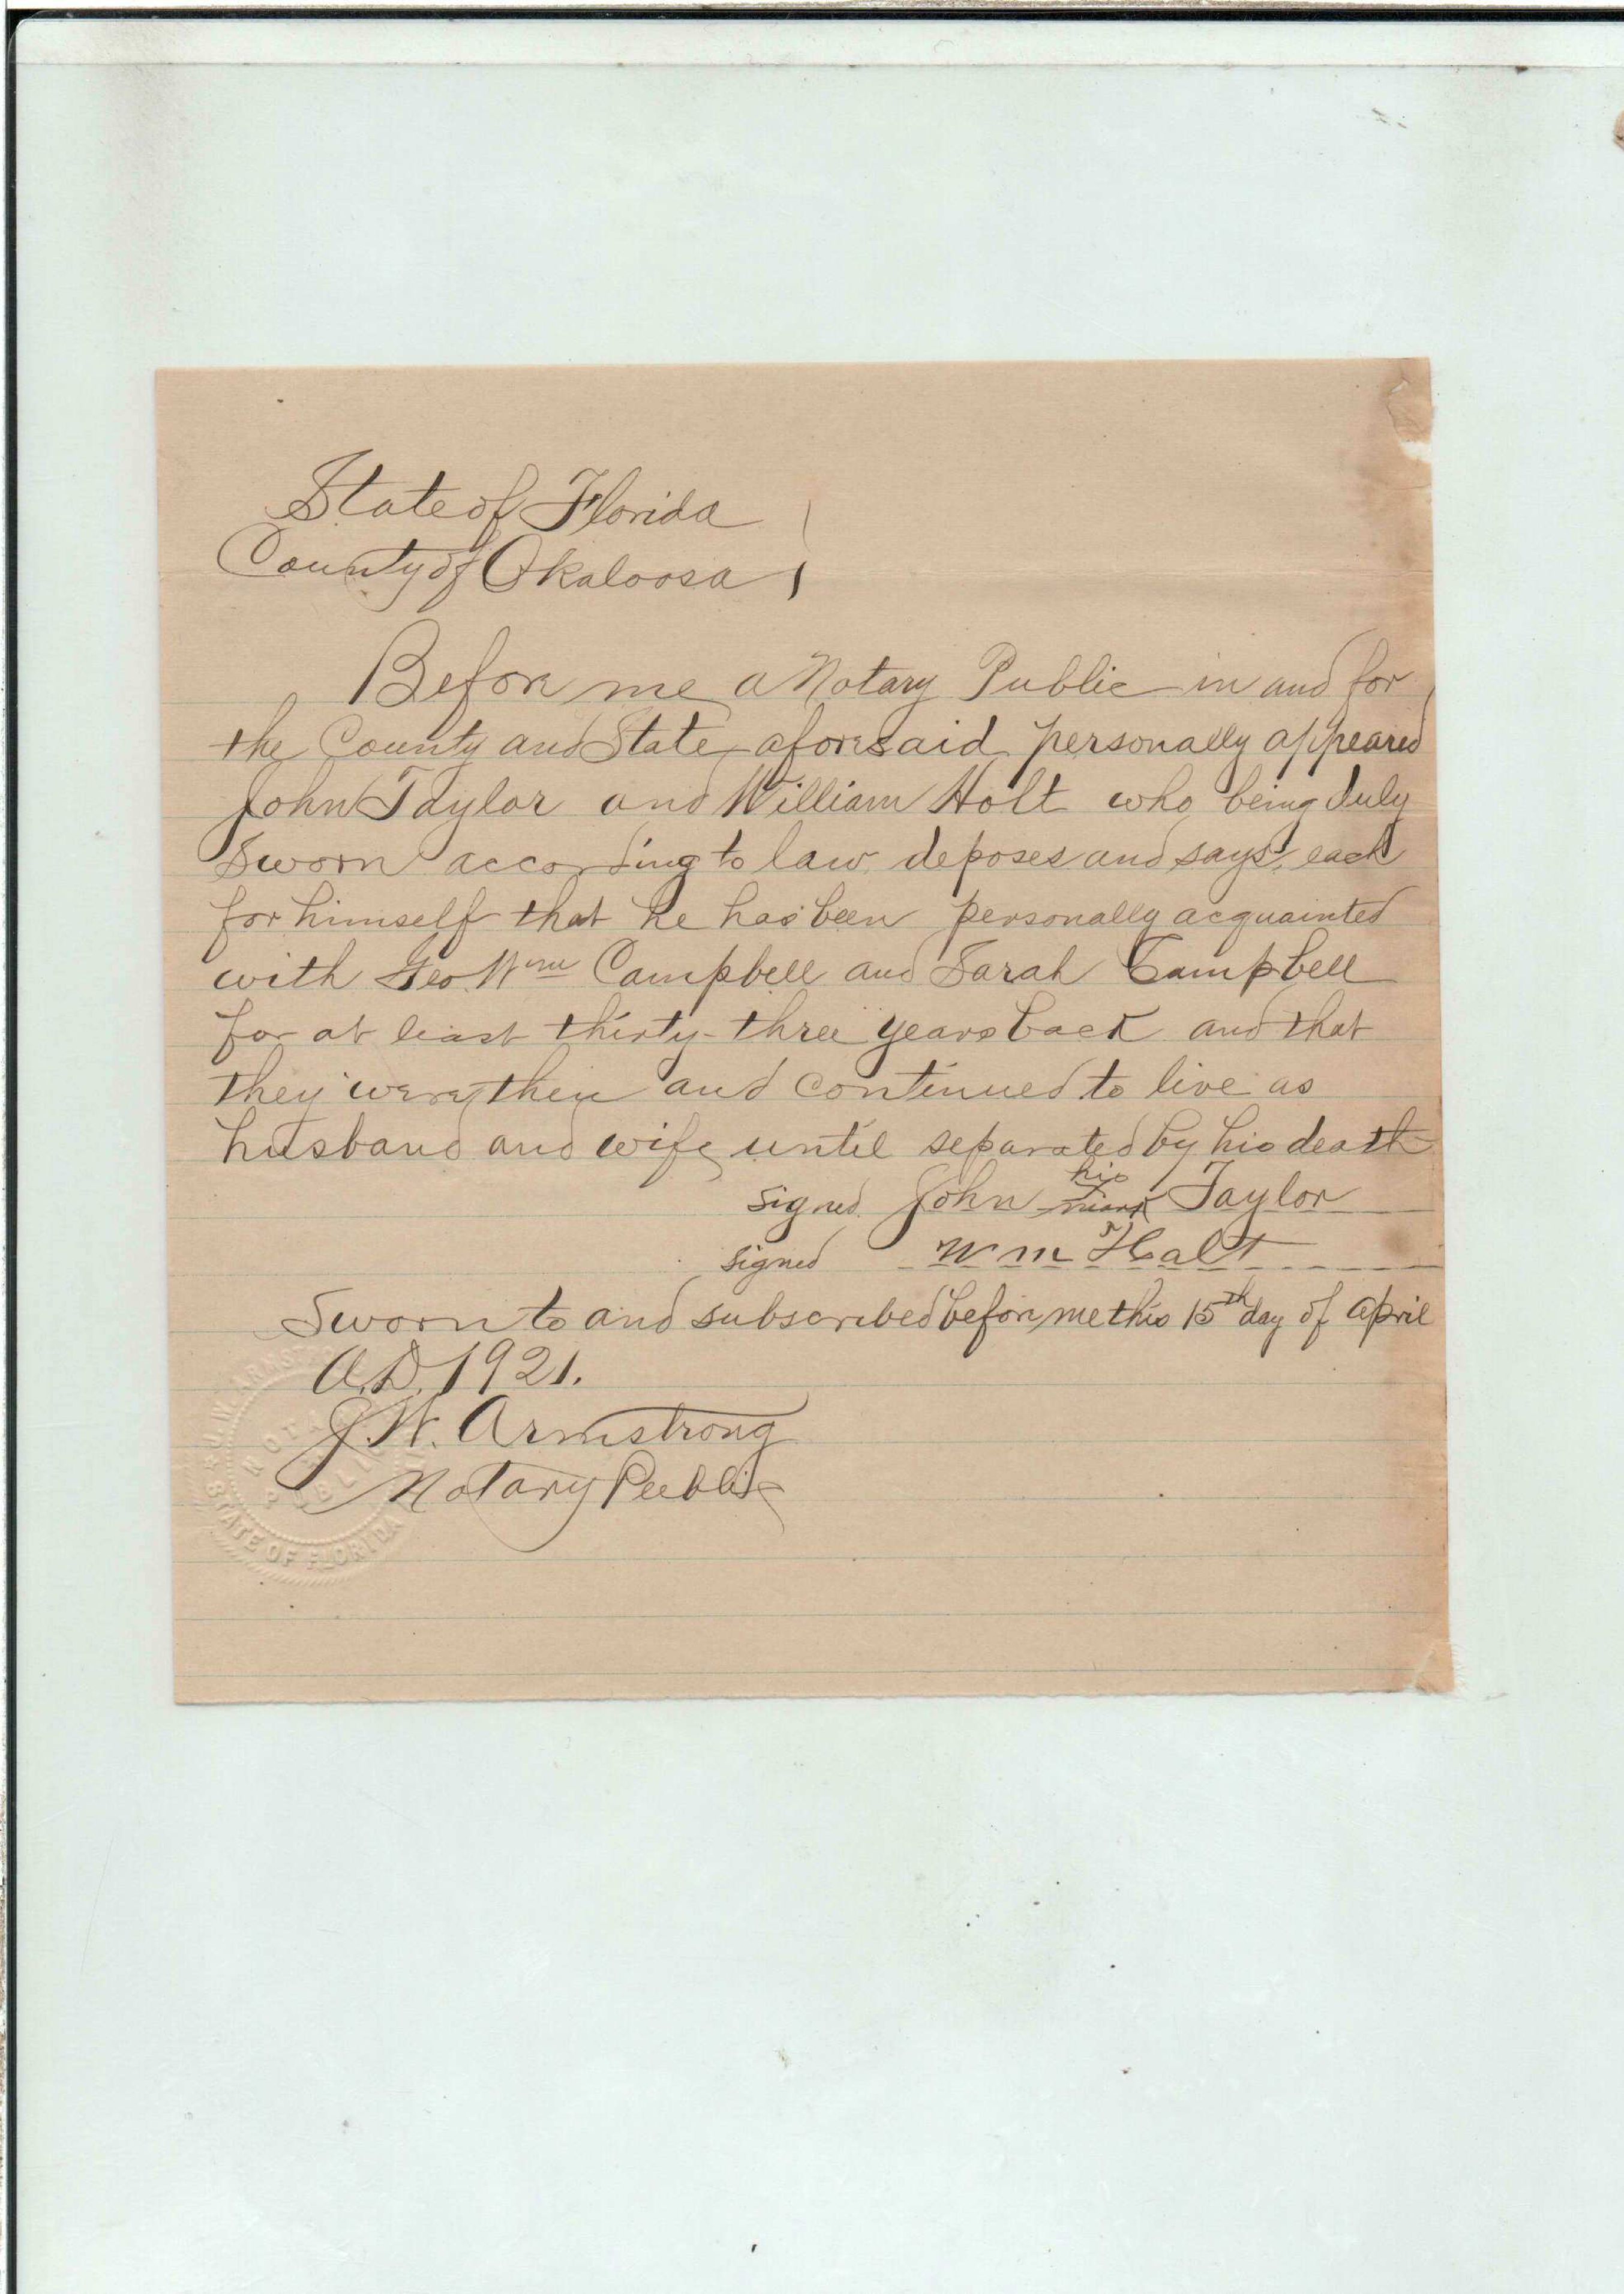 State of Florida
County of Okaloosa
Before me a Notary Public in and for
the County and State aforesaid personally appeared
John Taylor and William Holt who being duly
Sworn according to law, deposes and says, each
for himself that he has been personally acquainted
with Geo Wm Campbell and Sarah Campbell
for at least thirty-three years back and that
they were then and continued to live as
husband and wife until separated by his death
his
signed John mark Taylor
signed Wm Halt
Sworn to and subscribed before me this 15th day of April
A.D. 1921.
J.W. Armstrong
Notary Public
NOTARY
PUBLIC
STATE OF FLORIDA